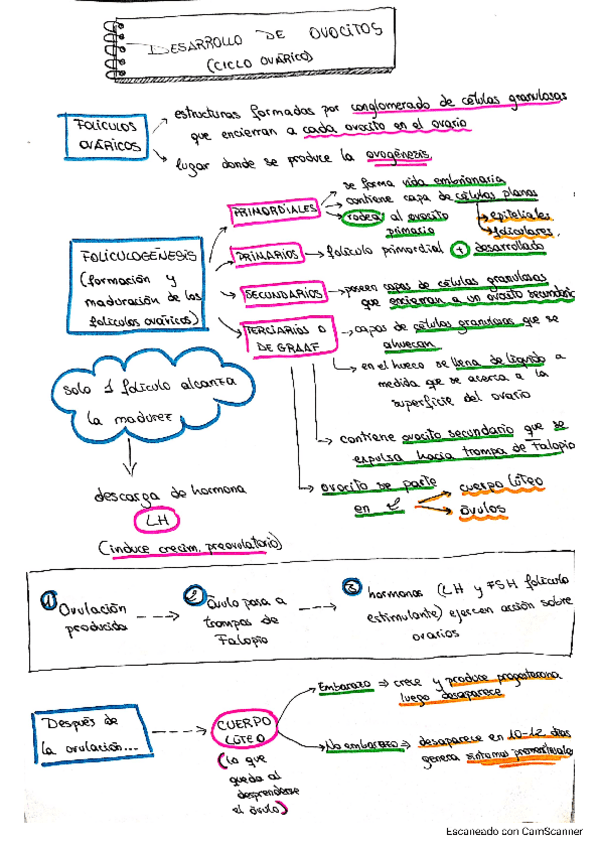 DESARROLLO DE OVOCITOS
(CICLO OVÁRICO)
FOLÍCULOS
OVÁRICOS
estructuras formadas por conglomerado de células granulosas
que encierran a cada ovocito en el ovario
lugar donde se produce la ovogénesis
FOLICULOGÉNESIS
(formación y
maduración de los
folículos ováricos)
PRIMORDIALES
se forma vida embrionaria
contiene capa de células planas
rodea al ovocito
primario
epiteliales
foliculares.
PRIMARIOS
folículo primordial + desarrollado
SECUNDARIOS
poseen capas de células granulosas
que encierran a un ovocito secundario
TERCIARIOS O
DE GRAAF
capas de células granulosas que se
ahuecan
en el hueco se llena de líquido a
medida que se acerca a la
superficie del ovario
contiene ovocito secundario que se
expulsa hacia trompa de Falopio
ovocito se parte
en 2
cuerpo lúteo
óvulos
solo 1 folículo alcanza
la madurez
descarga de hormona
LH
(induce crecim. preovulatorio)
1 Ovulación
producida
2 Óvulo pasa a
trompas de
Falopio
3 hormonas (LH y FSH folículo
estimulante) ejercen acción sobre
ovarios
Después de
la ovulación...
CUERPO
LÚTEO
(lo que
queda al
desprenderse
el óvulo)
Embarazo ⇒ crece y produce progesterona
luego desaparece
No embarazo ⇒ desaparece en 10-12 días
genera síntomas premenstruales
Escaneado con CamScanner